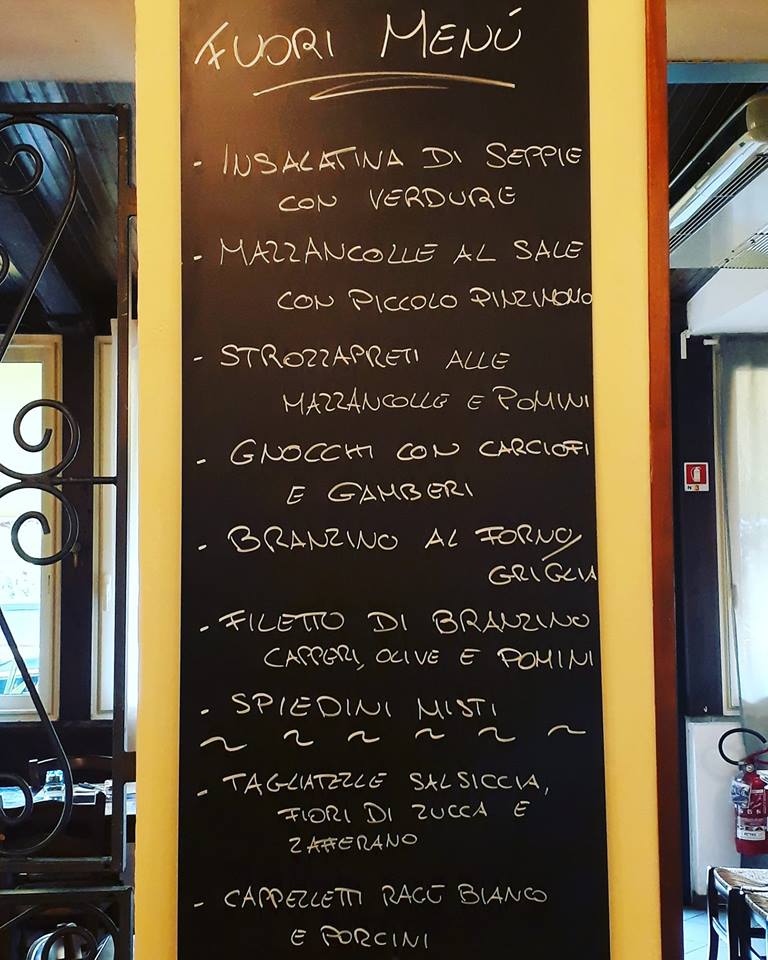 FUORI MENÚ
- INSALATINA DI SEPPIE
CON VERDURE
- MAZZANCOLLE AL SALE
CON PICCOLO PINZIMONO
- STROZZAPRETI ALLE
MAZZANCOLLE E POMINI
- GNOCCHI CON CARCIOFI
E GAMBERI
- BRANZINO AL FORNO/
GRIGLIA
- FILETTO DI BRANZINO
CAPPERI, OLIVE E POMINI
- SPIEDINI MISTI
~ ~ ~ ~ ~ ~
- TAGLIATELLE SALSICCIA,
FIORI DI ZUCCA E
ZAFFERANO
- CAPPELLETTI RAGÚ BIANCO
E PORCINI